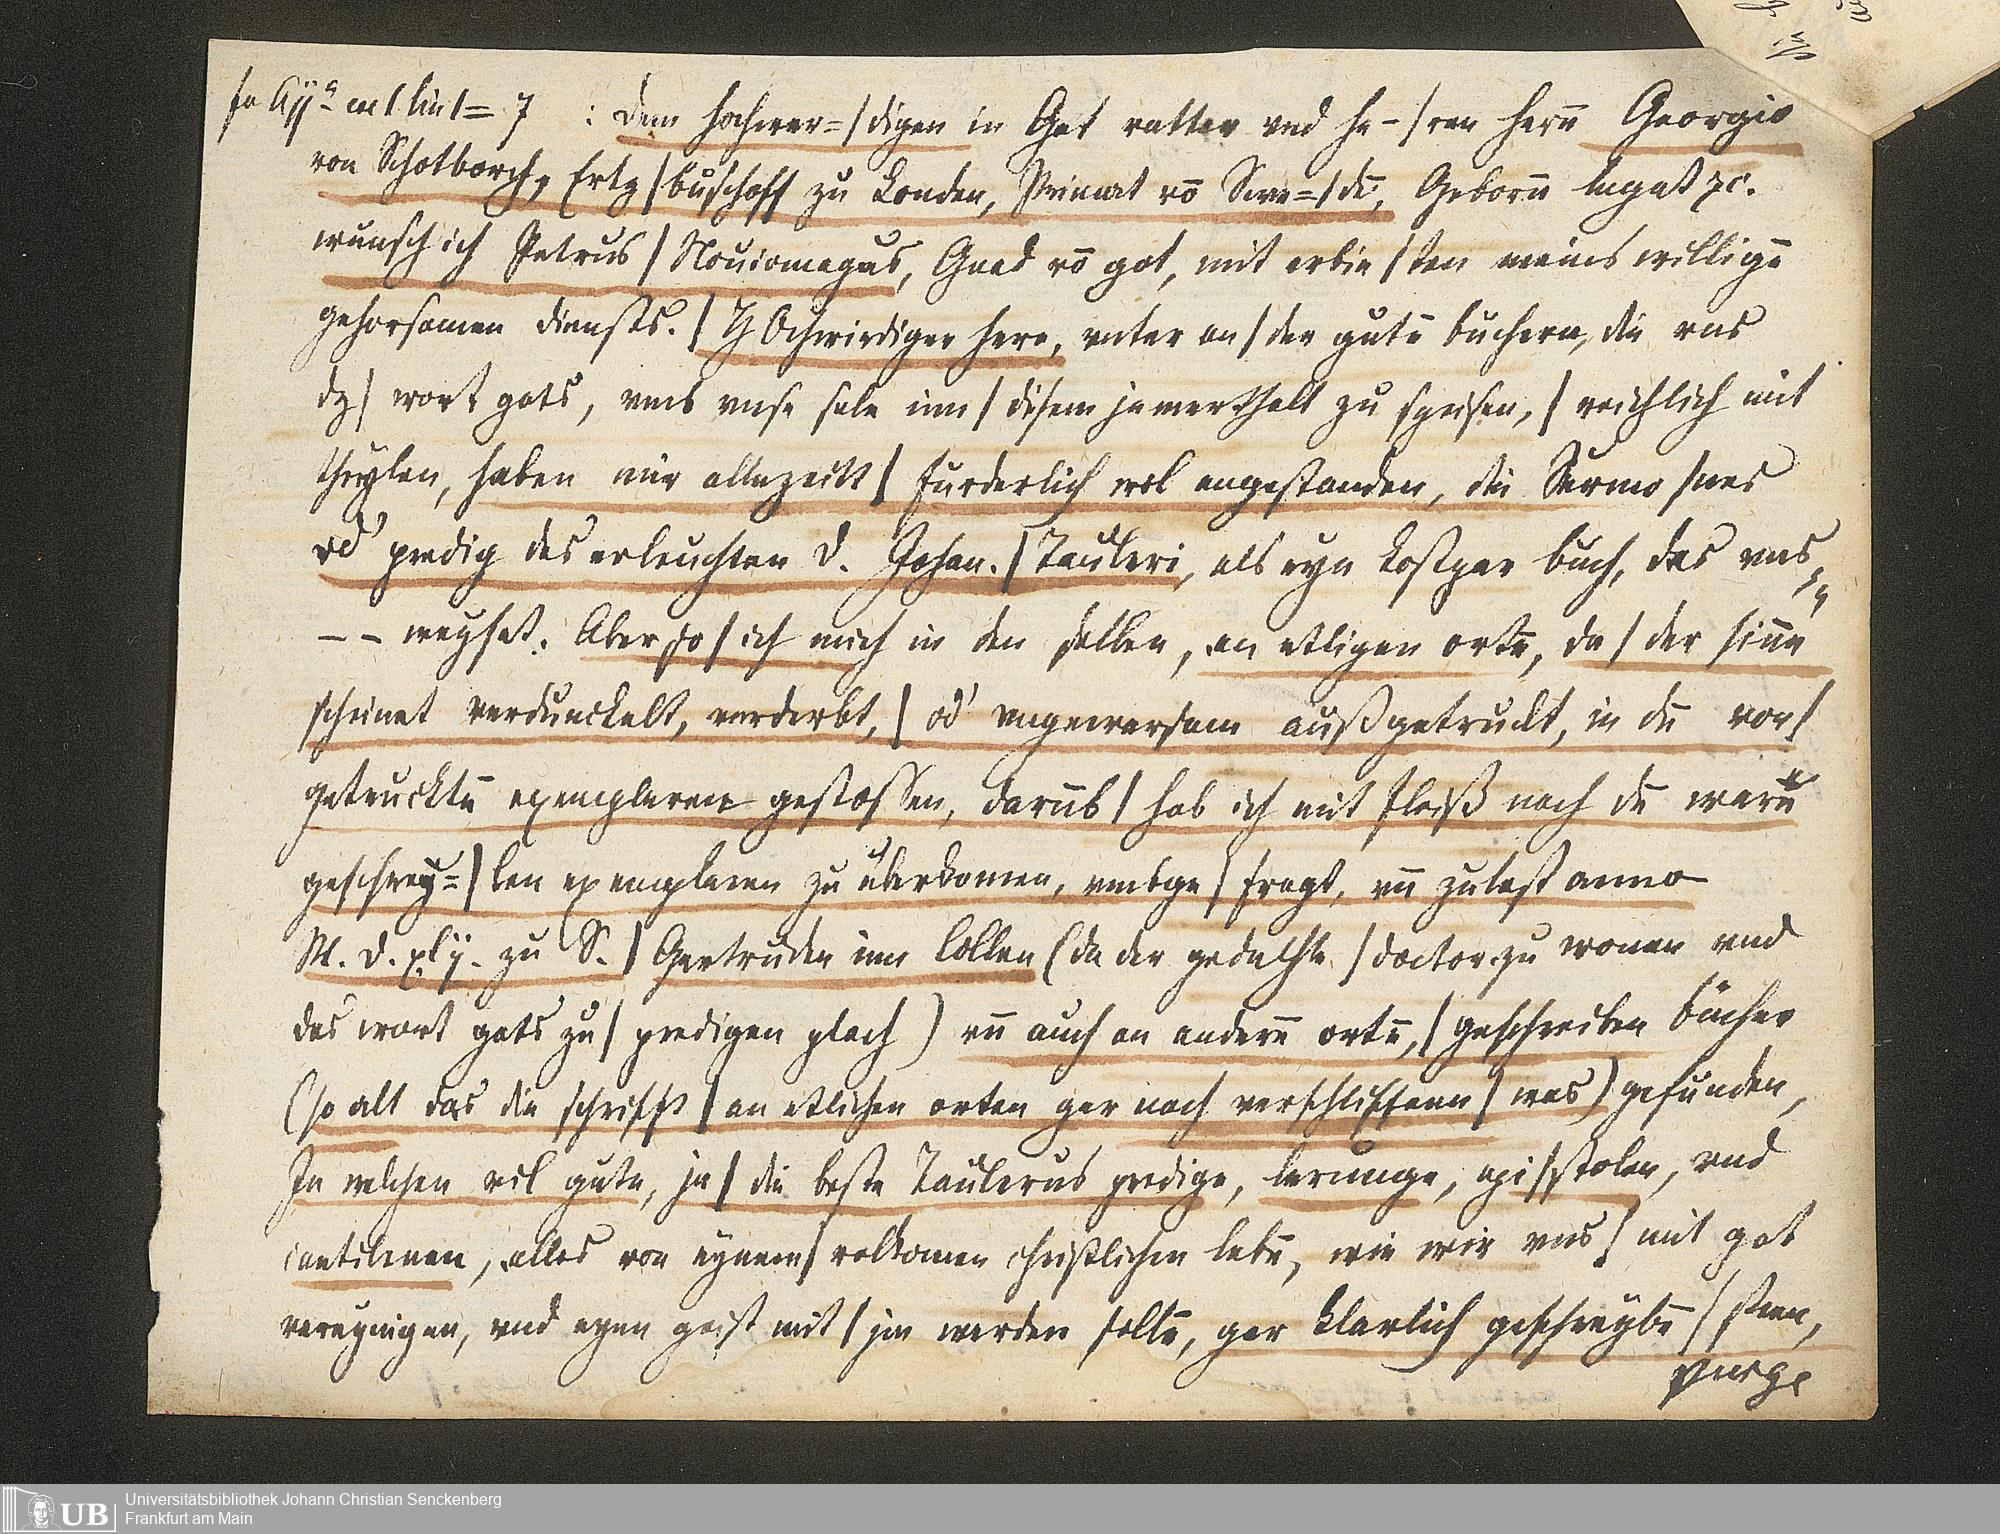 fo Aijª mit lin 1 = 7 : Dem hochwer=/digen in Got vatter vnd he-/ren herrn̄ Georgio
von Schotborch, Ertz/buschoff zu Londen, Primat vō Swe=/dē, Geborn̄ legat ⁊c.
wunsch ich Petrus / Nouiomagus, Gnad vō got, mit erbie/ten meins willigē
gehorsamen diensts. / HOchwirdiger here, vnter an/der gutē buchern, die vns
dz/ wort gots, vmb vnse sele inn / disem jamerthall zu speisen, / reichlich mit
theylen, haben mir allezeitt / furderlich wol angestanden, die Sermo/nes
od' predig des erleuchten D. Johan. / Tauleri, als eyn kostpar buch, das vns
– – weyset. Aber so / ich mich in den selben, an etligen ortē, da / der sinn
scheinet verdunckelt, verderbt, / od' vngewarsam außgetruckt, in dē vor/
getrucktē exemplaren gestossen, darūb / hab ich mit fleiß noch dē warē
geschrey=/ben exemplaren zu überkomen, vmbge/fragt, vn̄ zulest anno
M. D. xlij. zu S. / Gertruden inn Cöllen (da der gedachte / doctor zu wonen vnd
das wort gots zu / predigen plach) vn̄ auch an andern̄ ortē, / geschreiben bücher
(so alt das die schrifft / an etlichen orten ger noch verschliffenn / was) gefunden,
In welchen vil gute, ja / die beste Taulerus predige, lerunge, epi/stolen, vnd
cantilenen, alles von eynem / volkomen christlichen lebē, wie wir vns / mit got
vereynigen, vnd eyen geist mit / jm werden soltē, gar klarlich geschreybē /